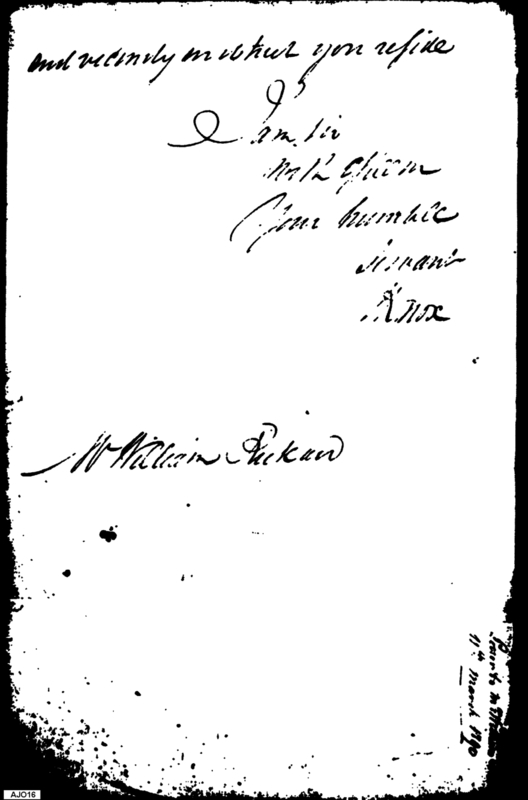 and vicinity in which you reside
I am, sir
with esteem
Your humble
servant
H Knox
Mr William Rickard
11th March 1790
AJO16